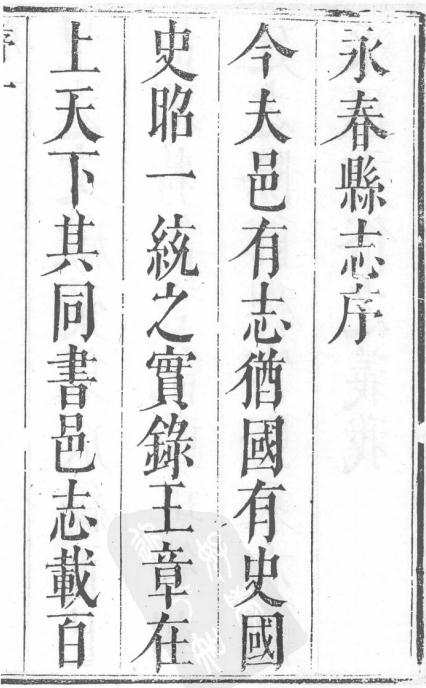 永春縣志序
今夫邑有志猶國有史國
史昭一統之實錄王章在
上天下其同書邑志載百